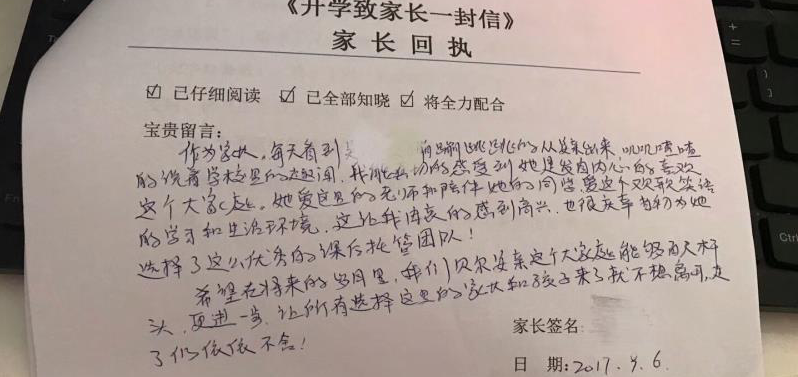 《开学致家长一封信》
家长回执
☑ 已仔细阅读 ☑ 已全部知晓 ☑ 将全力配合
宝贵留言:
作为家长,每天看到 蹦蹦跳跳的从 出来,叽叽喳喳
的说着学校里的趣闻,我能 切的感受到她是发自内心的喜欢
这个大家庭。她爱这里的老师和陪伴她的同学爱这个欢歌笑语
的学习和生活环境,这让我由衷的感到高兴,也很庆幸当初为她
选择了这么优秀的课后托管团队!
希望在将来的岁月里,我们贝尔安亲这个大家庭能够百尺竿
头,更进一步,让所有选择这里的家长和孩子来了就不想离开,走
了仍依依不舍!
家长签名
日 期:2017.9.6.